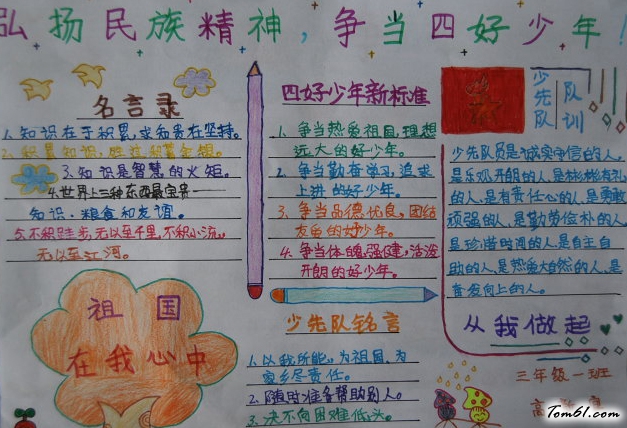 弘扬民族精神，争当四好少年！
名言录
1.知识在于积累，求知贵在坚持。
2.积累知识，胜过积蓄金银。
3.知识是智慧的火炬。
4.世界上三种东西最宝贵——
知识、粮食和友谊。
5.不积跬步，无以至千里，不积小流，
无以至江河。
祖国
在我心中
四好少年新标准
1. 争当热爱祖国，理想
远大的好少年。
2. 争当勤奋学习，追求
上进的好少年。
3. 争当品德优良，团结
友爱的好少年。
4. 争当体魄强健，活泼
开朗的好少年。
少先队铭言
1.以我所能，为祖国，为
家乡尽责任。
2.随时准备帮助别人。
3.决不向困难低头。
少先队
队训
少先队员是诚实守信的人。
是乐观开朗的人，是彬彬有礼
的人，是有责任心的人，是勇敢
顽强的人，是勤劳俭朴的人，
是珍惜时间的人，是自主自
助的人，是热爱大自然的人，是
奋发向上的人。
从我做起
三年级一班
Tom61.com